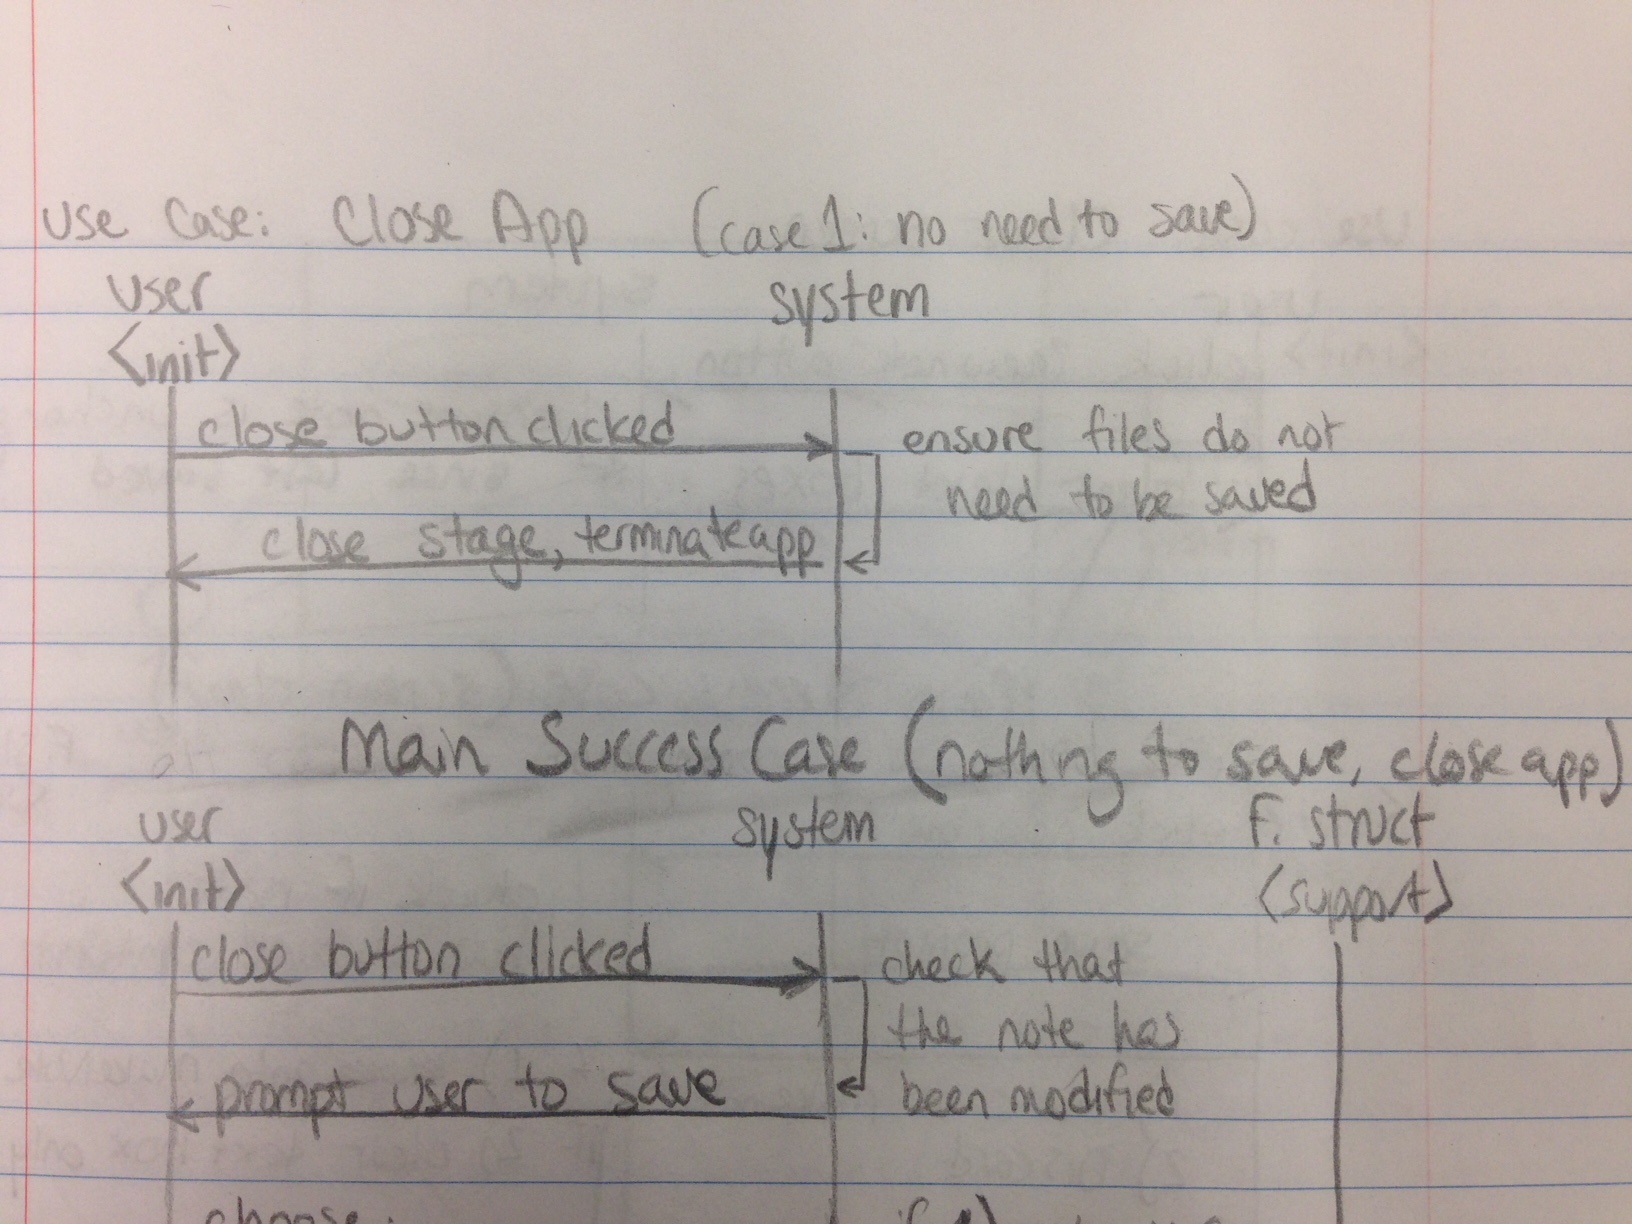 Use Case: Close App (case 1: no need to save)
user system
<init>
close button clicked
ensure files do not
need to be saved
close stage, terminate app
Main Success Case (nothing to save, close app)
user system F. struct
<init> <support>
close button clicked
check that
the note has
been modified
prompt user to save
choose: